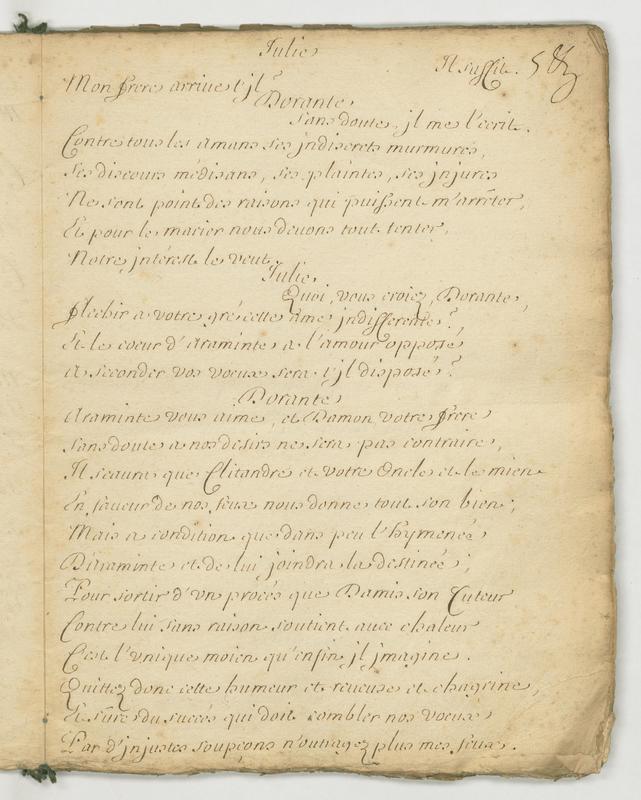 Julie
Il suffit.
Mon frere arrive t'jl ?
Dorante
sans doute, jl me l'ecrit.
Contre tous les amans ses jndiscrets murmures,
ses discours médisans, ses plaintes, ses jnjures
Ne sont point des raisons qui puissent m'arrêter,
Et pour le marier nous devons tout tenter,
Notre jntérest le veut.
Julie
Quoi, vous croiez, Dorante,
flechir a votre gré cette ame jndifferente ?
Et le coeur d'araminte a l'amour opposé
a seconder vos voeux sera t'jl disposé ?
Dorante
araminte vous aime, et Damon votre frere
sans doute a nos desirs ne sera pas contraire,
Il scaura que Clitandre et votre Oncle et le mien
En faveur de nos feux nous donne tout son bien ;
Mais a condition que dans peu l'hymenée
D'araminte et de lui joindra la destinée ;
Pour sortir d'vn procés que Damis son Tuteur
Contre lui sans raison soutient avec chaleur
C'est l'vnique moien qu'enfin jl jmagine.
Quittez donc cette humeur et reveuse et chagrine,
Et sûre du succés qui doit combler nos voeux
Par d'jnjustes soupçons n'outragez plus mes feux.